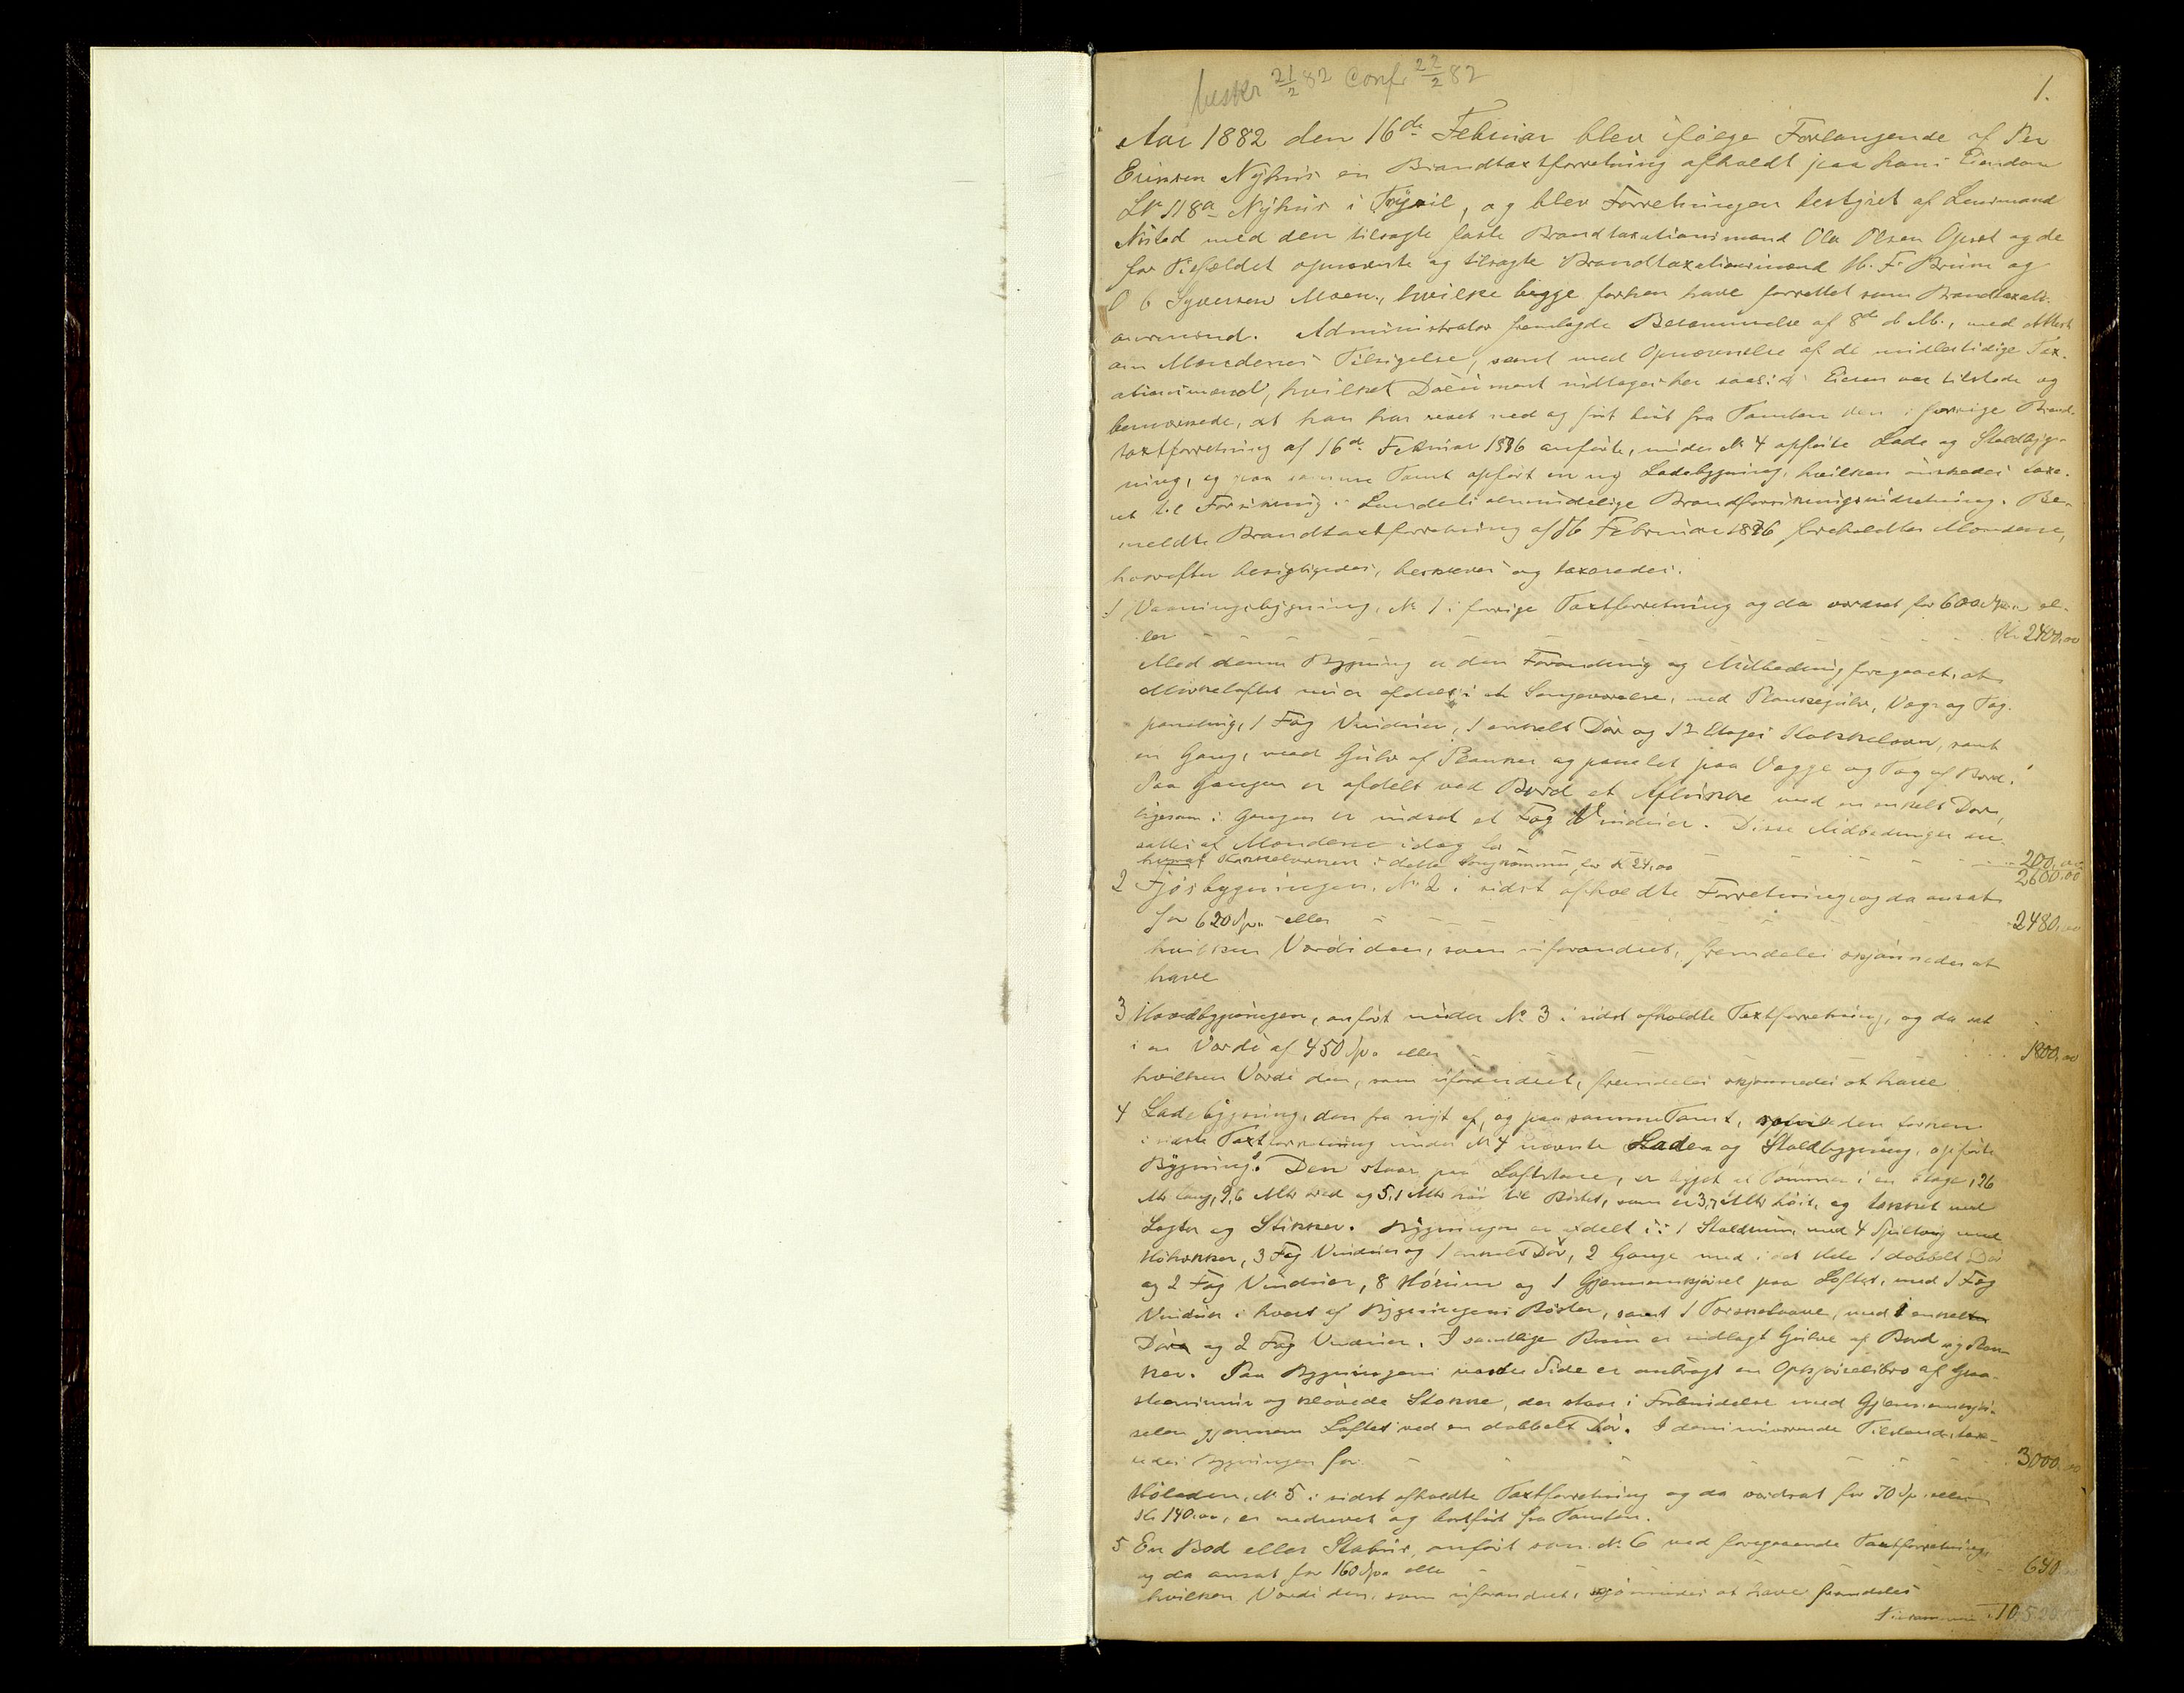 besktr 21/2 82 Conf. 22/2 82
1.
Aar 1882 den 16de Februar blev ifølge Forlangende af Per
Eriksen Nyhus en Brandtaxtforretning afholdt paa hans Eiendom
L№ 118a Nyhus i Trysil, og blev Forretningen bestyret af Lensmand
Nisted med den tilsagte faste Brandtaxationsmand Ole Olsen Opset og de
for Tilfældet opnævnte og tilsagte Brandtaxationsmænd H. F. Bruun og
O G Syversen Moen, hvilke begge forhen have forrettet som Brandtaxati-
onsmænd. Administrator fremlagde Berammelse af 8de ds. Ms., med Attest
om Mændenes Tilsigelse, samt med Opnævnelse af de midlertidige Tax-
ationsmænd, hvilket Document indtages her saal: Eieren var tilstede og
bemærkede, at han har revet ned og ført bort fra Tomten den i forrige Brand-
taxtforretning af 16de Februar 1876 anførte, under № 4 opførte Lade og Staldbyg-
ning, og paa samme Tomt opført en ny Ladebygning, hvilken ønskedes taxe-
ret til Forsikring i Landets almindelige Brandforsikringsindretning. Be-
meldte Brandtaxtforretning af 16 Februar 1876 foreholdtes Mændene,
hvorefter besigtigedes, beskreves og taxeredes.
1 Vaaningsbygning, № 1 i forrige Taxtforretning og da værdsat for 600 Spd. el-
ler - - - Kr. 2400,00
Med denne Bygning er den Forandring og Udbedring foregaaet, at
Mørkeloftet nu er afdelt i et Sengeværelse, med Plankegulv, Væg- og Tag-
paneling, 1 Fag Vinduer, 1 enkelt Dør og 1 2 Etages Kakkelovn, samt
en Gang, med Gulv af Planker og panelet paa Vægge og Tag af Bord.
Paa Gangen er afdelt ved Bord et Aflukke med en enkelt Dør,
ligesom i Gangen er indsat et Fag Vinduer. Disse Udbedringer an-
sattes af Mændene idag for - - - 200,00
hvoraf Kakkelovnen i dette for K 24,00
2600,00
2 Fjøsbygningen, № 2 i sidst afholdte Forretning, og da ansat
for 620 Spd. eller - - - 2480,00
hvilken Værdi den, som uforandret, fremdeles skjønnedes at
have
3 Hovedbygningen, anført under № 3 i sidst afholdte Taxtforretning, og da sat
i en Værdi af 450 Spd. eller - - - 1800,00
hvilken Værdi den, som uforandret, fremdeles skjønnedes at have
4 Ladebygning, den fra nyt af, og paa samme Tomt, den forhen
i sidste Taxtforretning under № 4 nævnte Lade- og Staldbygning, opførte
Bygning. Den staar paa , er bygget af Tømmer i en Etage, 26
Mtr lang, 9,6 Mtr bred og 5,1 Mtr høi til Røstet, som er 3,7 Mtr høit, og tækket med
Lægter og Stikker. Bygningen er afdelt i: 1 Staldrum, med 4 Spiltoug med
Høhækker, 3 Fag Vinduer og 1 enkelt Dør, 2 Gange med i det hele 1 dobbelt Dør
og 2 Fag Vinduer, 8 Hørum og 1 Gjennemkjørsel paa Loftet, med 1 Fag
Vinduer i hvert af Bygningens Røster, samt 1 Torskelaave, med 1 enkelt
Dør og 2 Fag Vinduer. I samtlige Rum er indlagt Gulve af Bord og Plan-
ker. Paa Bygningens Side er anbragt en Opkjørselsbro af Graa-
stensmur og kløvede Stokke, der staar i Forbindelse med Gjennemkjør-
selen gjennem Loftet ved en dobbelt Dør. I dens nuværende Tilstand tax-
eredes Bygningen for - - - 3000,00
Høladen, № 5 i sidst afholdte Taxtforretning og da værdsat for Spd. eller
Kr 140,00, er nedrevet og bortført fra Tomten.
5 En Bod eller Stabur, anført som № 6 ved foregaaende Taxtforretning,
og da ansat for 160 Spd. eller - - - 640
hvilken Værdi den, som uforandret, skjønnedes at have fremdeles
Tilsammen 10520